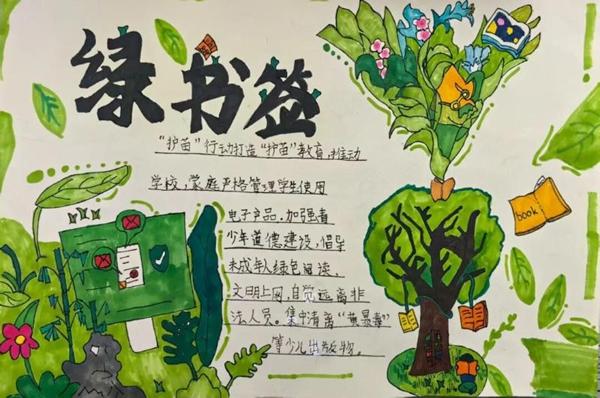 绿书签
"护苗"行动打造"护苗"教育,推动
学校,家庭严格管理学生使用
电子产品,加强青
少年道德建设,倡导
未成年人绿色阅读,
文明上网,自觉远离非
法人员。集中清离"黄暴毒"
等少儿出版物。
book